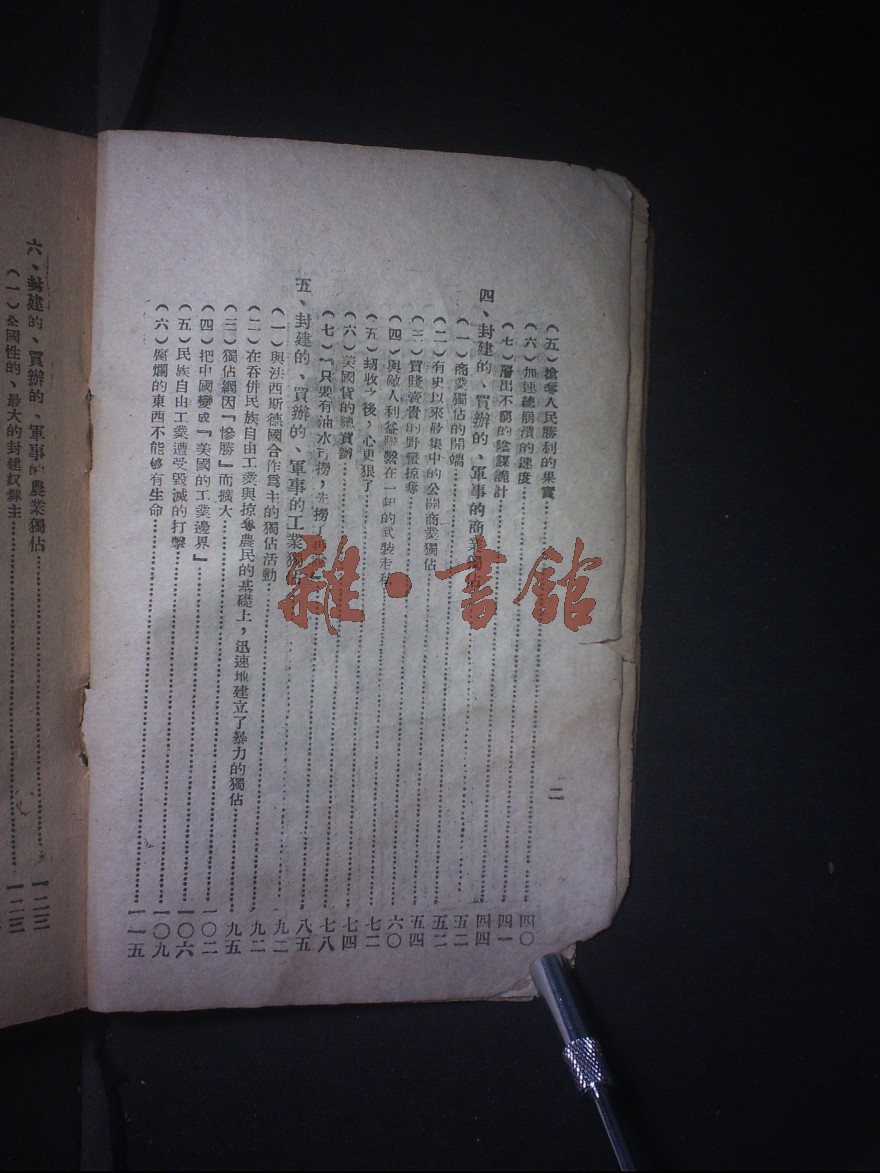 二
(五)搶奪人民勝利的果實……四〇
(六)加速總崩潰的速度……四一
(七)層出不窮的陰謀詭計……四四
四、封建的、買辦的、軍事的商業獨佔……四四
(一)商業獨佔的開端……五二
(二)有史以來最集中的公開商業獨佔……五二
(三)買賤賣貴的野蠻掠奪……五四
(四)與敵人利益聯繫在一起的武裝走私……六〇
(五)刼收之後,心更狠了……七二
(六)美國貨的總買辦……七四
(七)『只要有油水可撈,先撈了再說』……七八
五、封建的、買辦的、軍事的工業獨佔……八五
(一)與法西斯德國合作爲主的獨佔活動……九二
(二)在吞併民族自由工業與掠奪農民的基礎上,迅速地建立了暴力的獨佔……九二
(三)獨佔網因『慘勝』而擴大……九五
(四)把中國變成『美國的工業邊界』……一〇二
(五)民族自由工業遭受毀滅的打擊……一〇六
(六)腐爛的東西不能够有生命……一〇九
一一五
六、封建的、買辦的、軍事的農業獨佔……一二三
(一)全國性的、最大的封建奴隸主……一二三
雜·書館